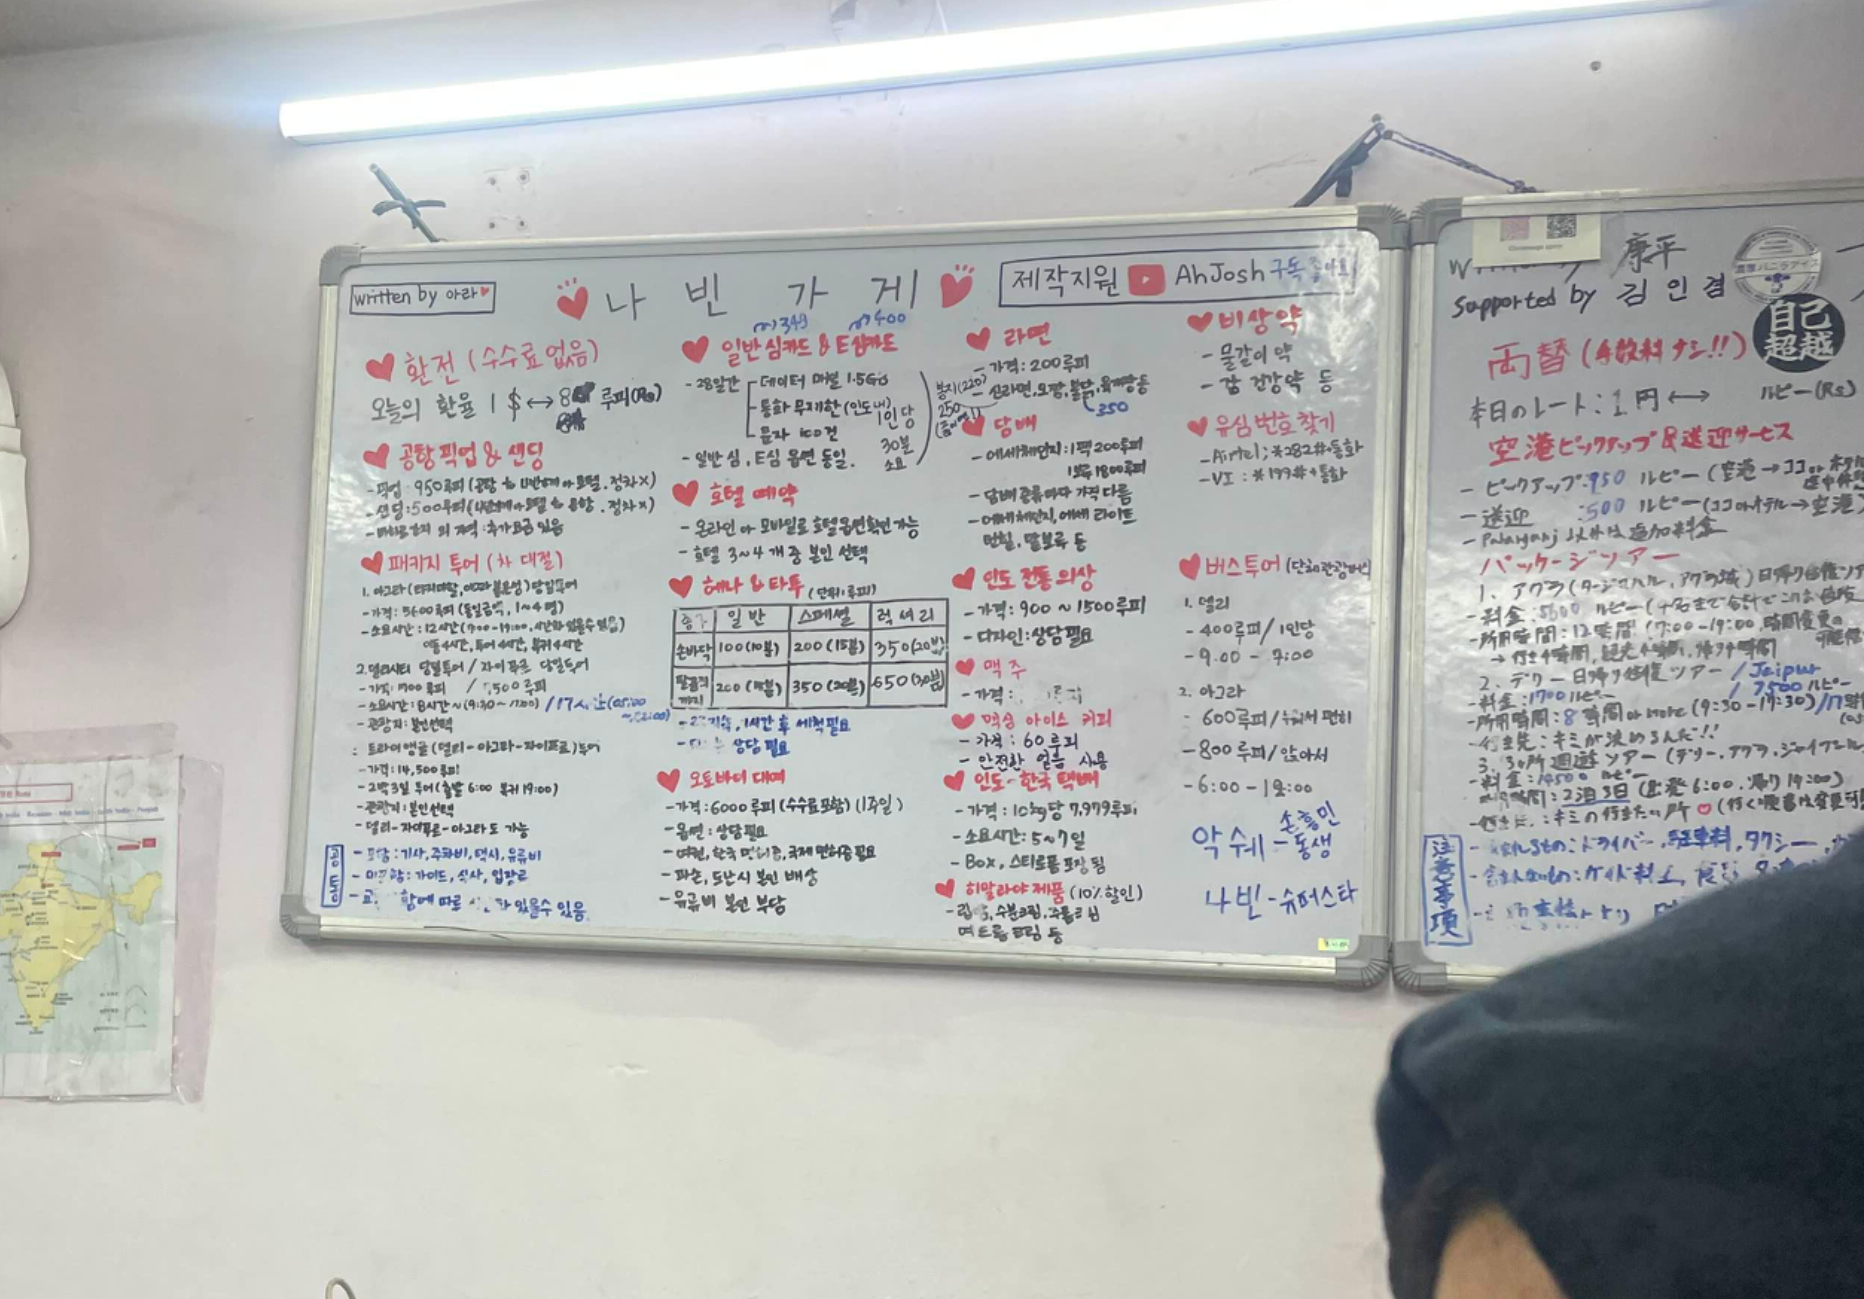 written by 아라
나 빈 가 게
제작지원 AhJosh 구독
349
400
환전 (수수료 없음)
오늘의 환율 1 $ ↔ 8 루피(Rs)
공항 픽업 & 샌딩
- 픽업 : 950루피 (공항 정차X)
- 샌딩 : 500루피 공항 . 정차X)
지역 : 추가요금 있음
패키지 투어 (차 대절)
1. 아그라 (타지마할, 당일투어
- 가격 : 5600루피 (동일금액, 1~4명)
- 소요시간 : 12시간 (7:00-19:00,
투어 4시간, 복귀 4시간
2. 델리시티 당일투어 / 자이푸르 당일투어
- 가격 : 1700루피 / 500루피
- 소요시간 : 8시간 ~ (9:30~
- 관광지 : 본인선택
트라이앵글 (델리-아그라-자이푸르) 투어
- 가격 : 14,500루피
- 2박3일 투어 (출발 6:00 복귀 19:00)
- 관광지 : 본인선택
- 델리-자이푸르-아그라도 가능
- 포함 : 기사, 주차비, 택시, 유류비
- 미포함 : 가이드, 식사, 입장료
따로 있을수 있음
일반 심카드 & E심카드
- 28일간
데이터 매일 1.5GB
통화 무제한 (인도 내)
문자 100건
1인당
30분
소요
- 일반심, E심 옵션 동일.
호텔 예약
- 온라인 or 모바일로 호텔옵션확인 가능
- 호텔 3~4개 중 본인 선택
헤나 & 타투 (단위:루피)
일반 스페셜 럭셔리
손바닥 100(10분) 200(15분) 350(20분)
200 350(20분) 650(30분)
1시간 후 세척필요
상담필요
오토바이 대여
- 가격 : 6000루피 (수수료포함) (1주일)
- 옵션 : 상담필요
- 여권, 한국 면허증, 국제 면허증필요
- 파손, 도난시 본인 배상
- 유류비 본인 부담
라면
- 가격 : 200루피
- 신라면, 오짱, 불닭, 등
봉지(220)
250
350
담배
- 에세체인지 : 1팩 200루피
1보루 1800루피
- 담배 종류마다 가격 다름
- 에세체인지, 에세 라이트
던힐, 말보루 등
인도 전통 의상
- 가격 : 900 ~ 1500루피
- 디자인 : 상담필요
맥주
- 가격 :
믹싱 아이스 커피
- 가격 : 60루피
- 안전한 얼음 사용
인도-한국 택배
- 가격 : 10kg당 7,979루피
- 소요시간 : 5~7일
- Box, 스티로폼 포장 됨
히말라야 제품 (10%할인)
수분크림,
등
비상약
- 물갈이 약
- 감 강약 등
유심 번호 찾기
- Airtel ; *282#+통화
- VI : *199#+통화
버스투어 (단체관광버스)
1. 델리
- 400루피/1인당
- 9:00 - 7:00
2. 아그라
- 600루피/누워서 편히
- 800루피/앉아서
- 6:00 -
악쉐 - 손흥민
동생
나빈 - 슈퍼스타
康平
Supported by 김 인 겸
自己
超越
両替 (手数料ナシ!!)
本日のレート : 1円 ↔ ルピー(Rs)
空港ピックアップ&送迎サービス
- ピックアップ:950 ルピー (空港→ココ
- 送迎 :500 ルピー (ココorホテル→空港)
- Paharganj 以外は追加料金
パッケージツアー
1. アグラ (タージマハル, アグラ城) 日帰り
- 料金 : 5600 ルピー
- 所用時間 : 12時間 (7:00-19:00, 時間変更
→ 行き4時間, 観光4時間, 帰り4時間
2. デリー日帰り往復ツアー / Jaipur
- 料金 : 1700ルピー / 7500ルピー
- 所用時間 : 8時間 or more (9:30-17:30)
- 行き先 : キミが決めるんだ!!
3. 3か所週遊ツアー (デリー, アグラ,
- 料金 : 14500 ルピー
2泊3日 (出発 6:00, 帰り 19:00)
キミの行きたい所
注意事項
ドライバー, 駐車料, タクシー,